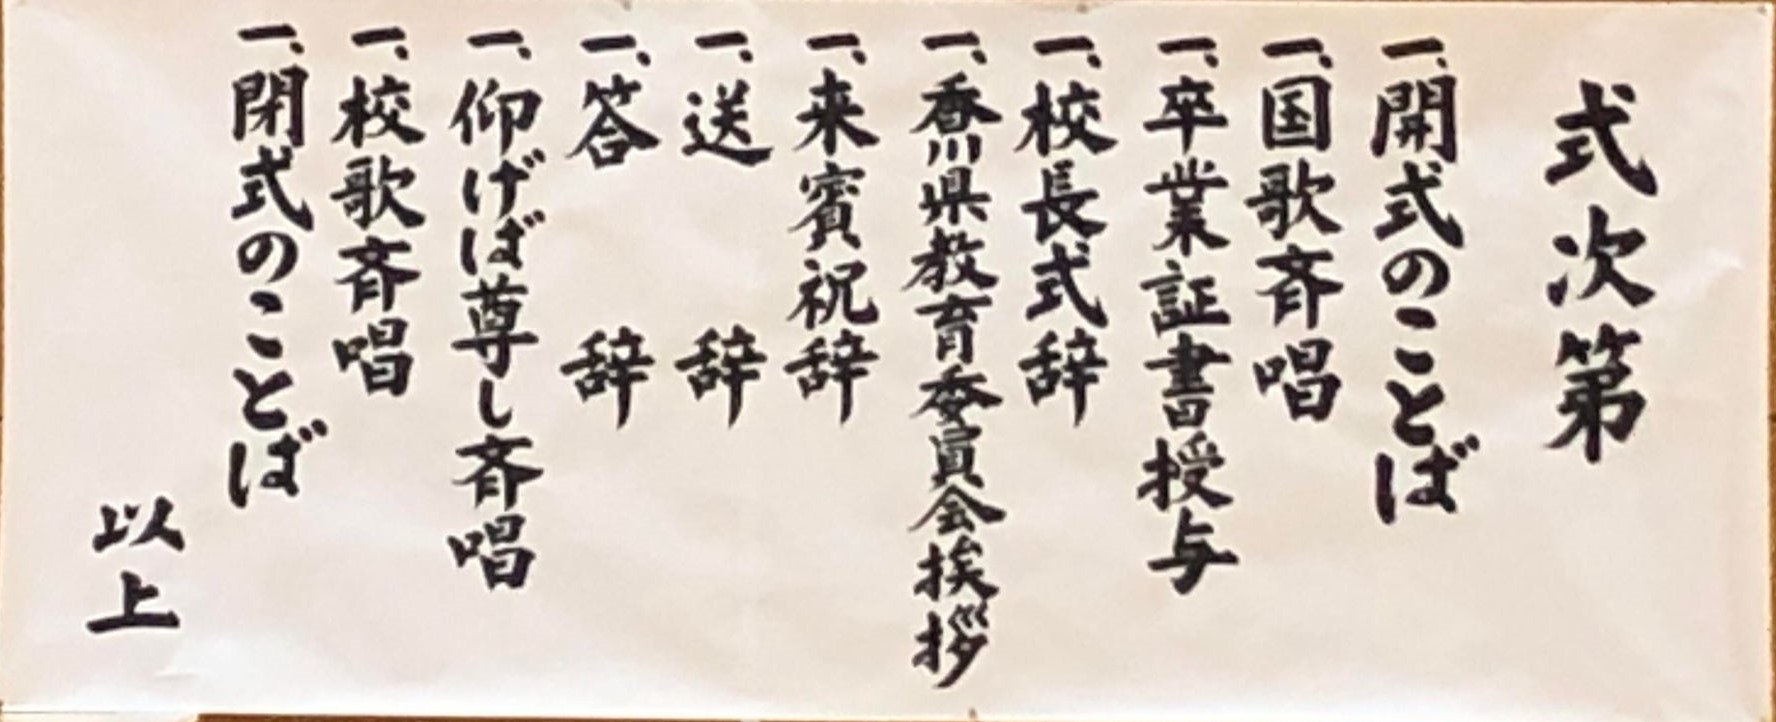 式次第
一、開式のことば
一、国歌斉唱
一、卒業証書授与
一、校長式辞
一、香川県教育委員会挨拶
一、来賓祝辞
一、送辞
一、答辞
一、仰げば尊し斉唱
一、校歌斉唱
一、閉式のことば
以上